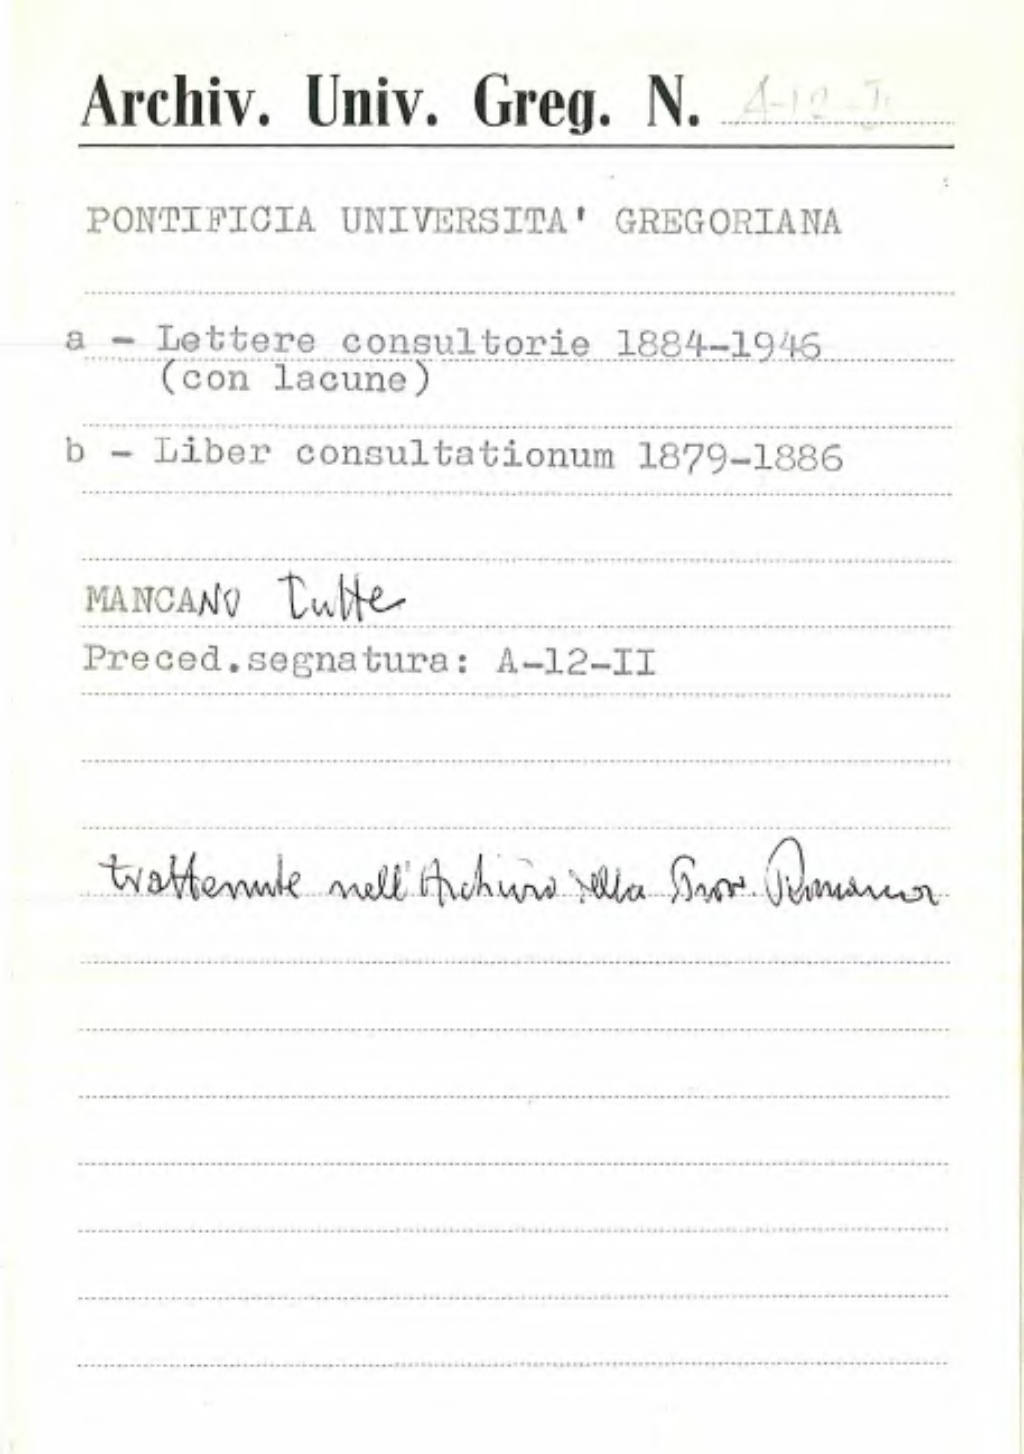 Archiv. Univ. Greg. N.
PONTIFICIA UNIVERSITA' GREGORIANA
a - Lettere consultorie 1884-1946
(con lacune)
b - Liber consultationum 1879-1886
MANCANO tutte
Preced.segnatura: A-12-II
trattenute nell'Archivio della Prov. Romana